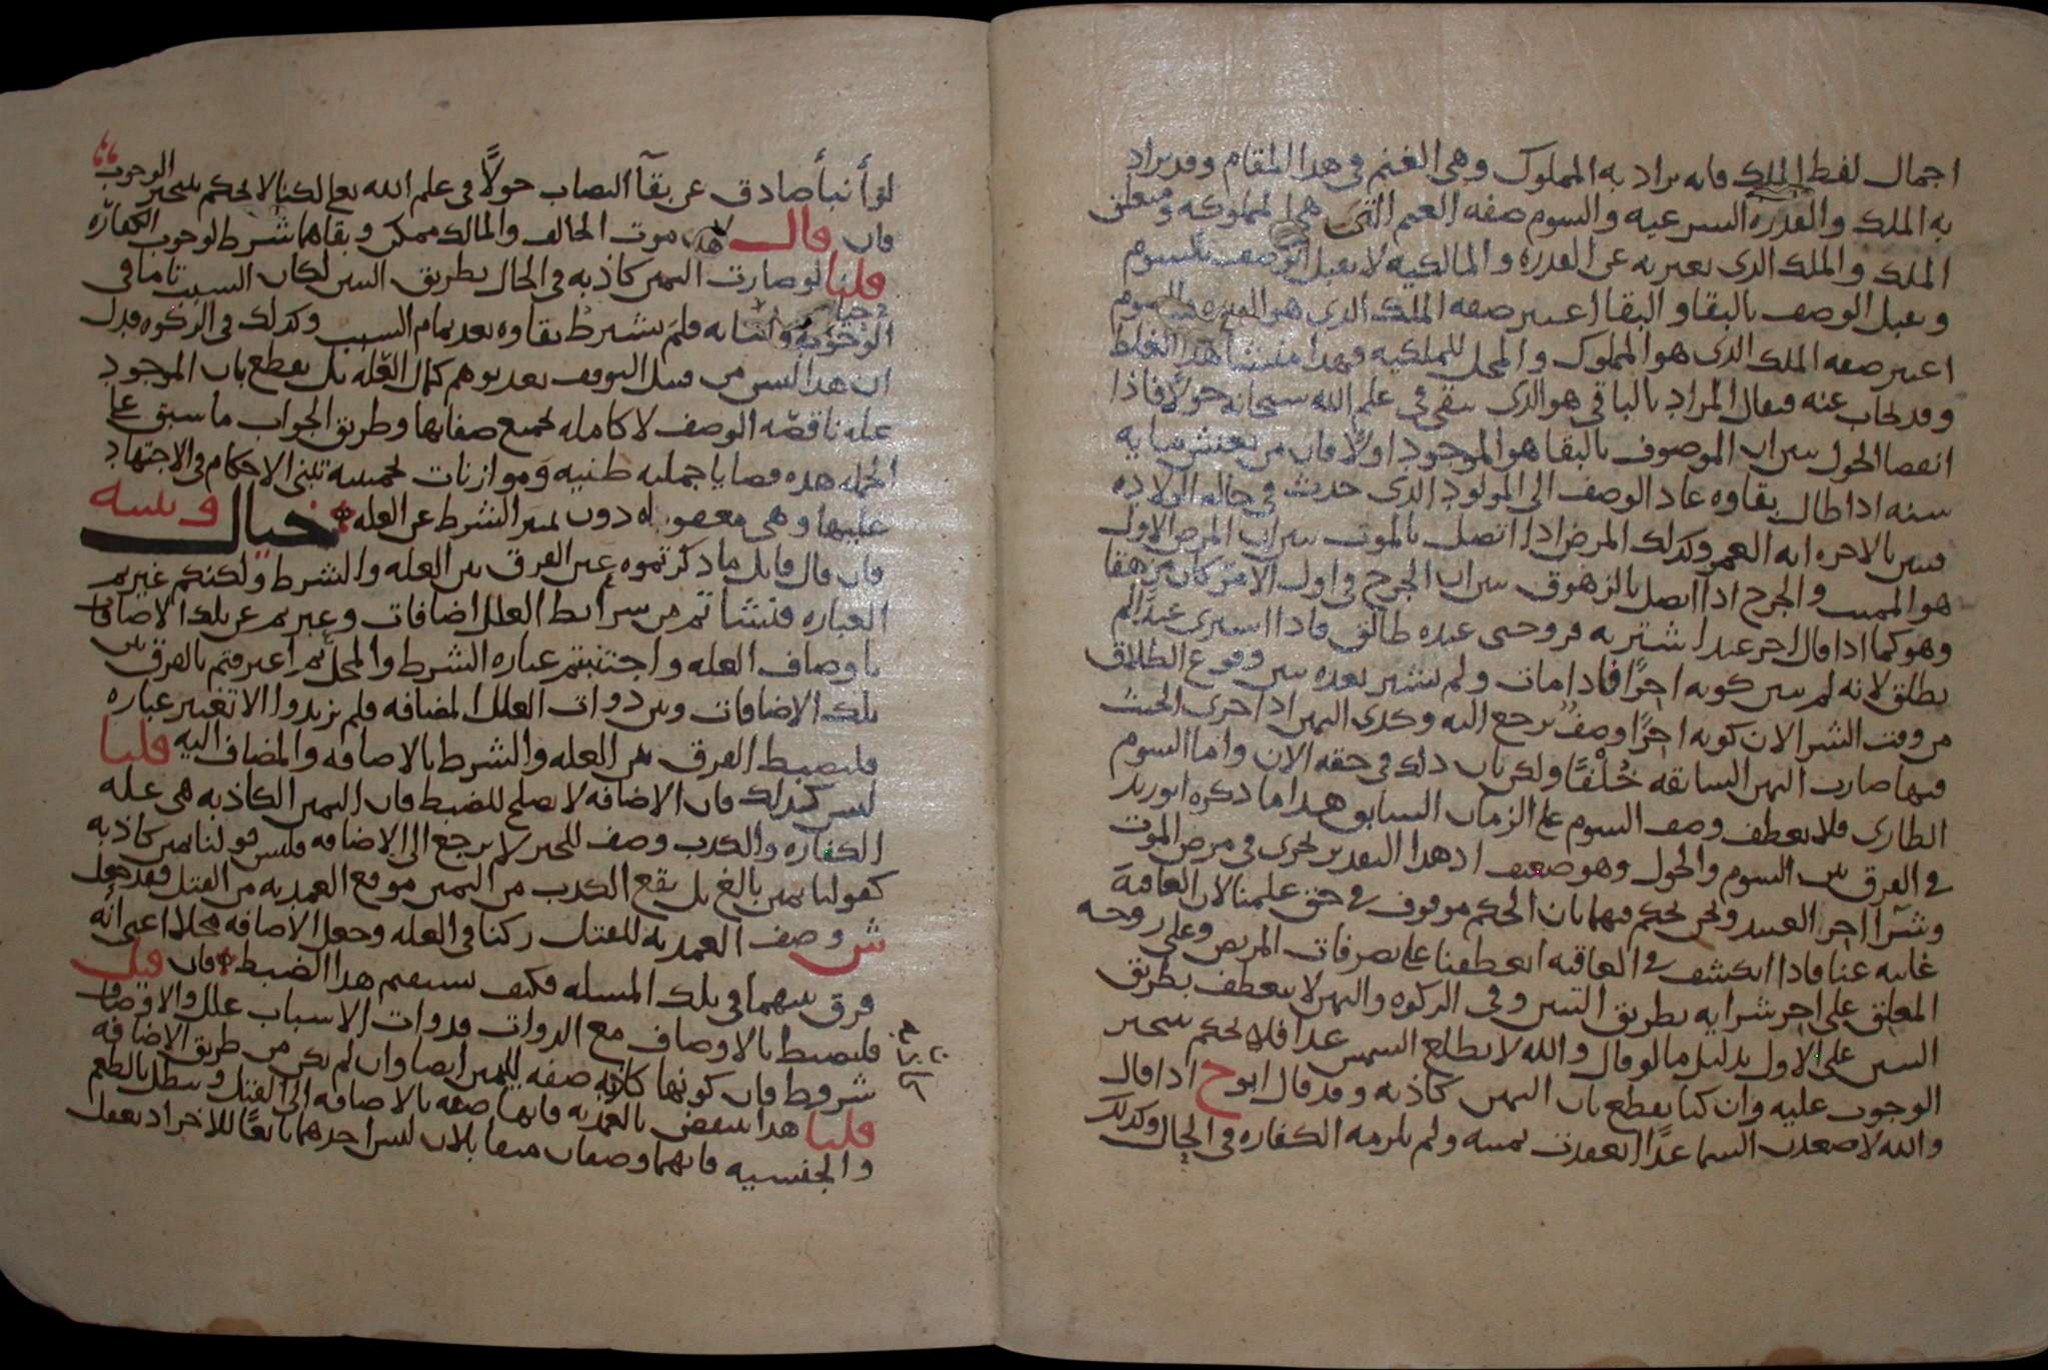 اجمال لفظ الملك فانه يراد به المملوك وهى الغنم فى هذا المقام وقد يراد
به الملك والقدرة الشرعيه والسوم صفه الغنم التى هى المملوكه ومتعلق
الملك والملك الذى يعبر به عن القدره والمالكيه لا يقبل الوصف بالسوم
ويقبل الوصف بالبقا والبقا اعتبر صفه الملك الذى هو القدره والسوم
اعتبر صفه الملك الذى هو المملوك والمحل للملكيه فهذا منشا هذا الغلط
وقد يجاب عنه فيقال المراد بالباقى هو الذى يبقى فى علم الله سبحانه حولا فاذا
انقضا الحول تبين ان الموصوف بالبقا هو الموجود اولا فان من يعيش مايه
سنه اذا طال بقاوه عاد الوصف الى المولود الذى حدث فى حاله الولاده
فتبين بالاخره انه العمر وكذلك المرض اذا اتصل بالموت تبين ان المرض الاول
هو المميت والجرح اذا اتصل بالزهوق تبين ان الجرح فى اول الامر كان مزهقا
وهو كما اذا قال اخر عبد اشتريه فزوجتى عنده طالق فاذا اشترى عبدا لم
يطلق لانه لم يتبين كونه اخرًا فاذا مات ولم يشتر بعده تبين وقوع الطلاق
من وقت الشرا الان كونه اخرًا وصف يرجع اليه وكذى اليمين اذا جرى الحنث
فيها صارت اليمين السابقه خُلْفًا ولكن بان ذلك فى حقه الان واما السوم
الطارى فلا يعطف وصف السوم على الزمان السابق هذا ما ذكره ابو زيد
فى الفرق بين السوم والحول وهو ضعيف اذ هذا التقدير يجرى فى مرض الموت
وشرآ اخر العبيد ونحن نحكم فيهما بان الحكم موقوف فى حق علمنا لان العاقبة
غايبه عنا فاذا انكشف فى العاقبه انعطفنا على تصرفات المريض وعلى زوجه
المعلق على اخر شرايه بطريق التبين وفى الزكوه واليمين لا ينعطف بطريق
التبين على الاول بدليل ما لو قال والله لا تطلع الشمس غدا فلا نحكم بتنجيز
الوجوب عليه وان كنا نقطع بان اليمين كاذبه وقد قال ابو ح اذا قال
والله لاصعدن السما غدًا انعقدت يمينه ولم يلزمه الكفاره فى الحال وكذلك
لو أنبأ صادق عن بقآ النصاب حولاً فى علم الله تعالى لكنا لا نحكم بتنجيز الوجوب
فان قال لا موت الحالف والمالك ممكن وبقاها شرط لوجوب الكفاره
قلنا لو صارت اليمين كاذبه فى الحال بطريق التبين لكان السبب تاما فى
فلم يشترط بقاوه بعد تمام السبب وكذلك فى الزكوه فدل
ان هذا ليس من قبيل التوقف بعد توهم كمال العله بل يقطع بان الموجود
عله ناقصه الوصف لا كامله بجميع صفاتها وطريق الجواب ما سبق على
الجمله هذه قضايا جمليه ظنيه وموازنات تخمينيه تبنى الاحكام فى الاجتهاد
عليها وهى دون تميز الشرط عن العله خيال وتنبيه
فان قال قايل ما ذكرتموه عين الفرق بين العله والشرط ولكنكم غيرتم
العباره فنشاتم من شرايط العلل اضافات وعبرتم عن تلك الاضافات
باوصاف العله واجتنبتم عباره الشرط والمحل ثم اعترفتم بالفرق بين
تلك الاضافات وبين ذوات العلل المضافه فلم تزيدوا الا تغيير عباره
فليضبط الفرق بين العله والشرط بالاضافه والمضاف اليه قلنا
ليس كذلك فان الاضافه لا تصلح للضبط فان اليمين الكاذبه هى عله
الكفاره والكذب وصف للخبر لا يرجع الى الاضافه فليس قولنا يمين كاذبه
كقولنا يمين بالغ بل يقع الكذب من اليمين موقع العمديه من القتل فقد جعل
ش وصف العمديه للقتل ركنا فى العله وجعل الاضافه محلا اعنى انه
فرق بينهما فى تلك المسله فكيف يستقيم هذا الضبط فان قيل
فليضبط بالاوصاف مع الذوات فذوات الاسباب علل والاوصاف
شروط فان كونها كاذبه صفه لليمين ايضا وان لم يكن من طريق الاضافه
قلنا هذا ينتقض بالعمديه فانها صفه بالاضافه الى القتل ويبطل بالطعم
والجنسيه فانهما وصفان متقابلان ليس احدهما تابعًا للاخر اذ نعقل